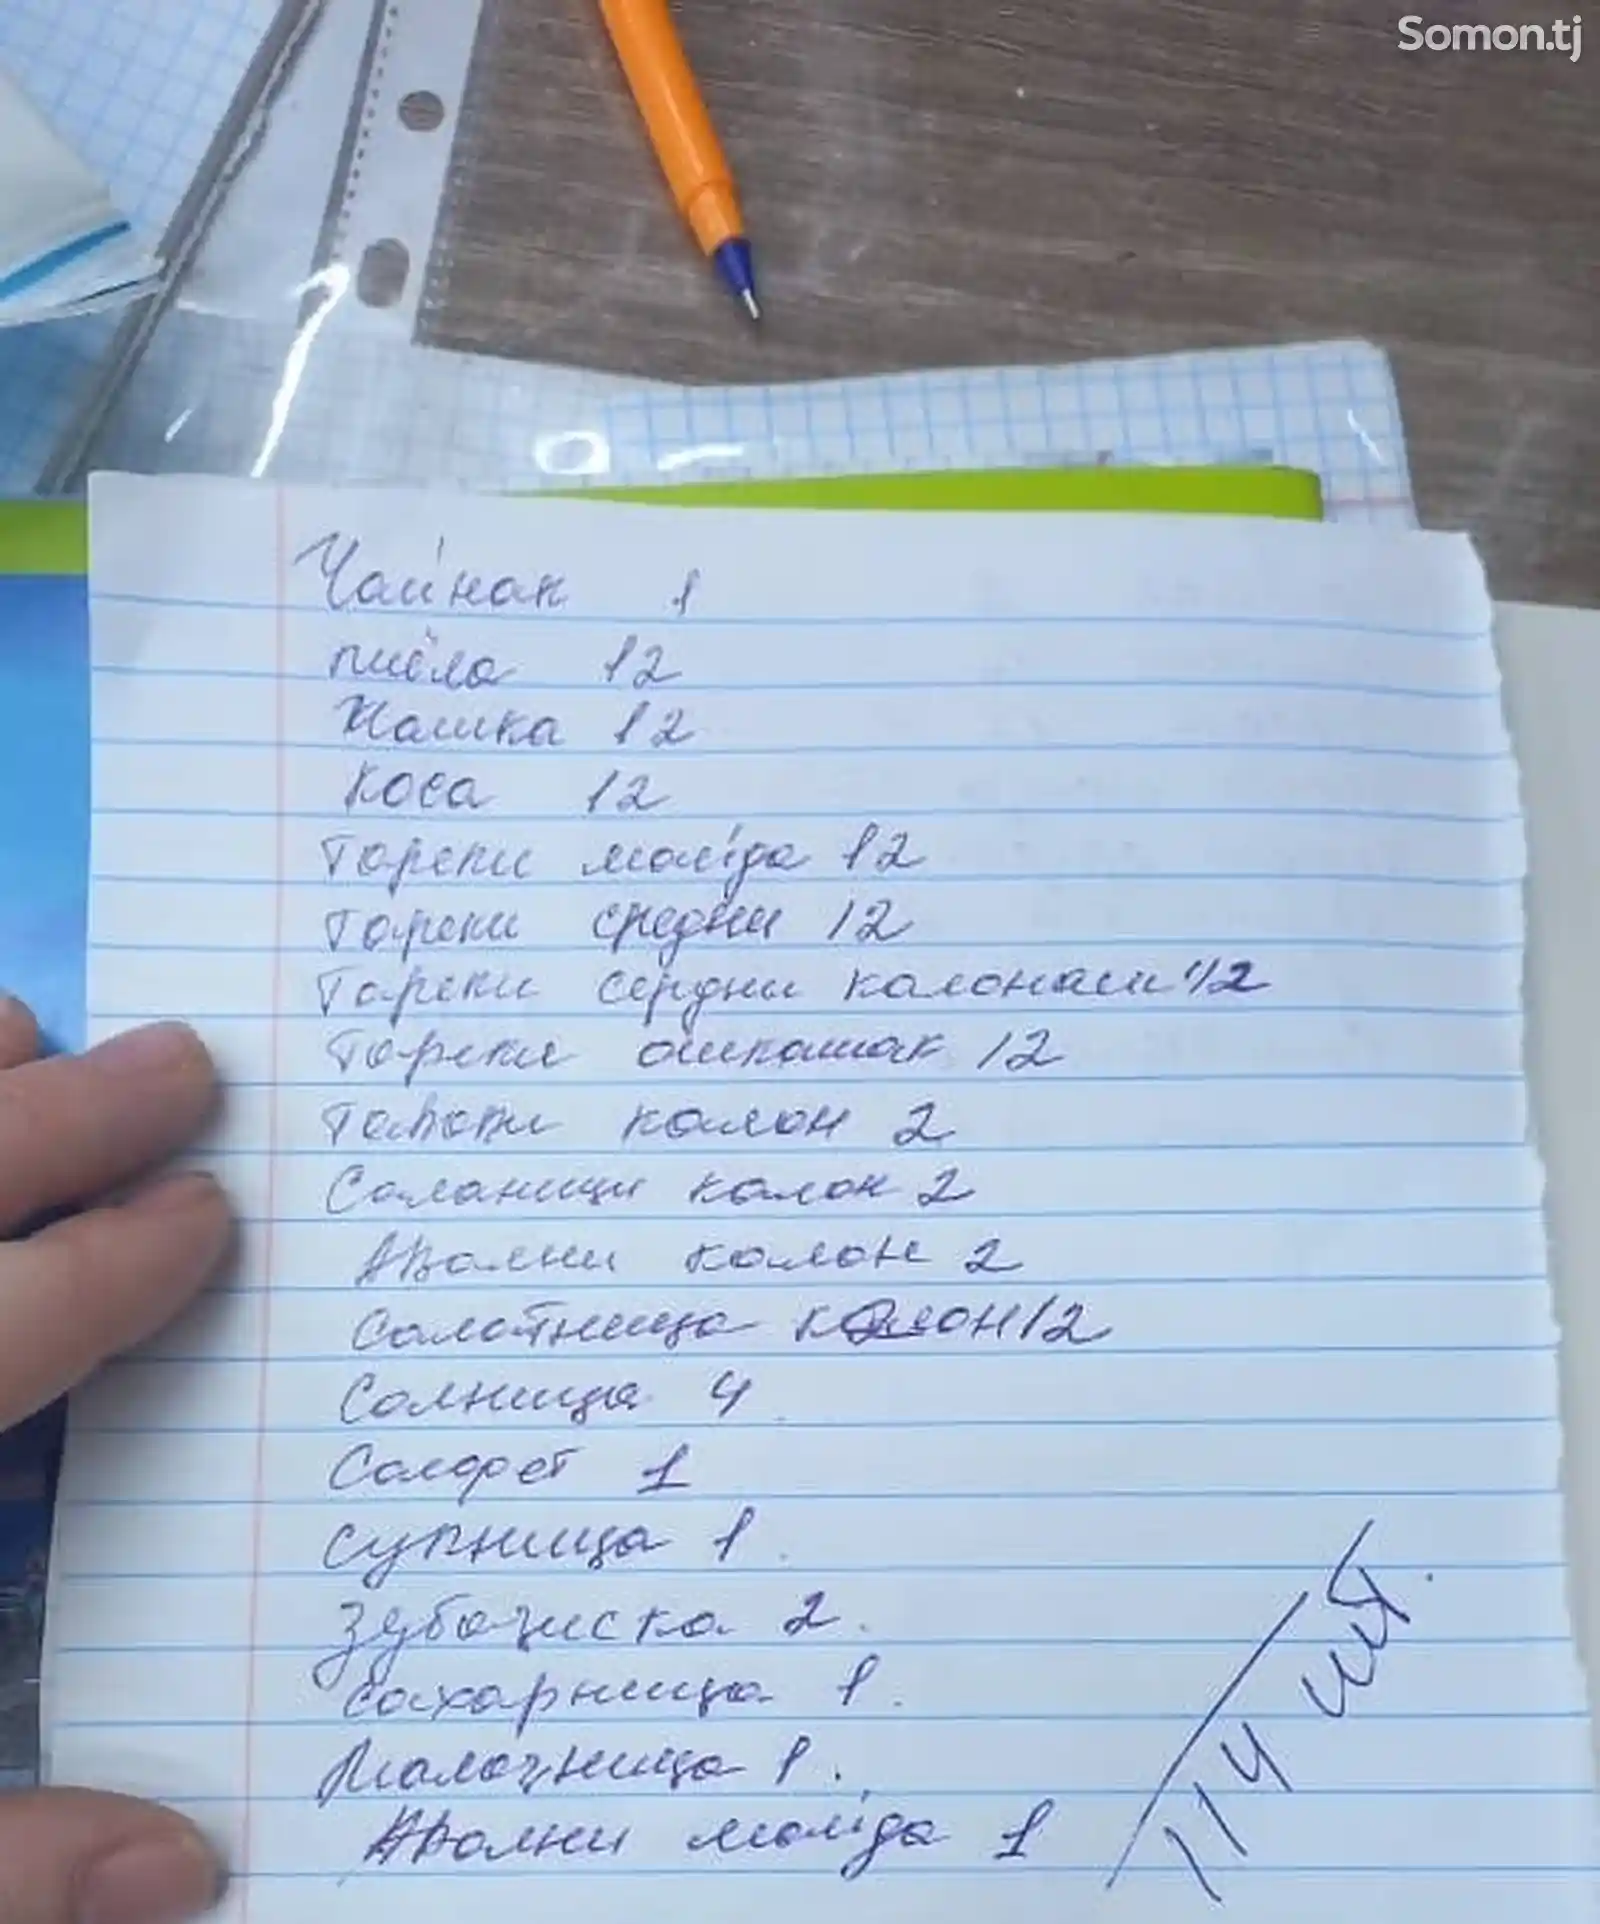 Somon.tj
Чайнак 1
пиёла 12
Кашка 12
коса 12
Тарелки майда 12
Тарелки средни 12
Тарелки сердни калонаш 12
Тарелки ошкашак 12
Тапоки калон 2
Саланици калон 2
Авални калон 2
Салотница калон 12
Салница 4
Салфет 1
супница 1.
Зубочиска 2.
Сахарница 1.
Малочница 1.
Авални майда 1
114 шт.